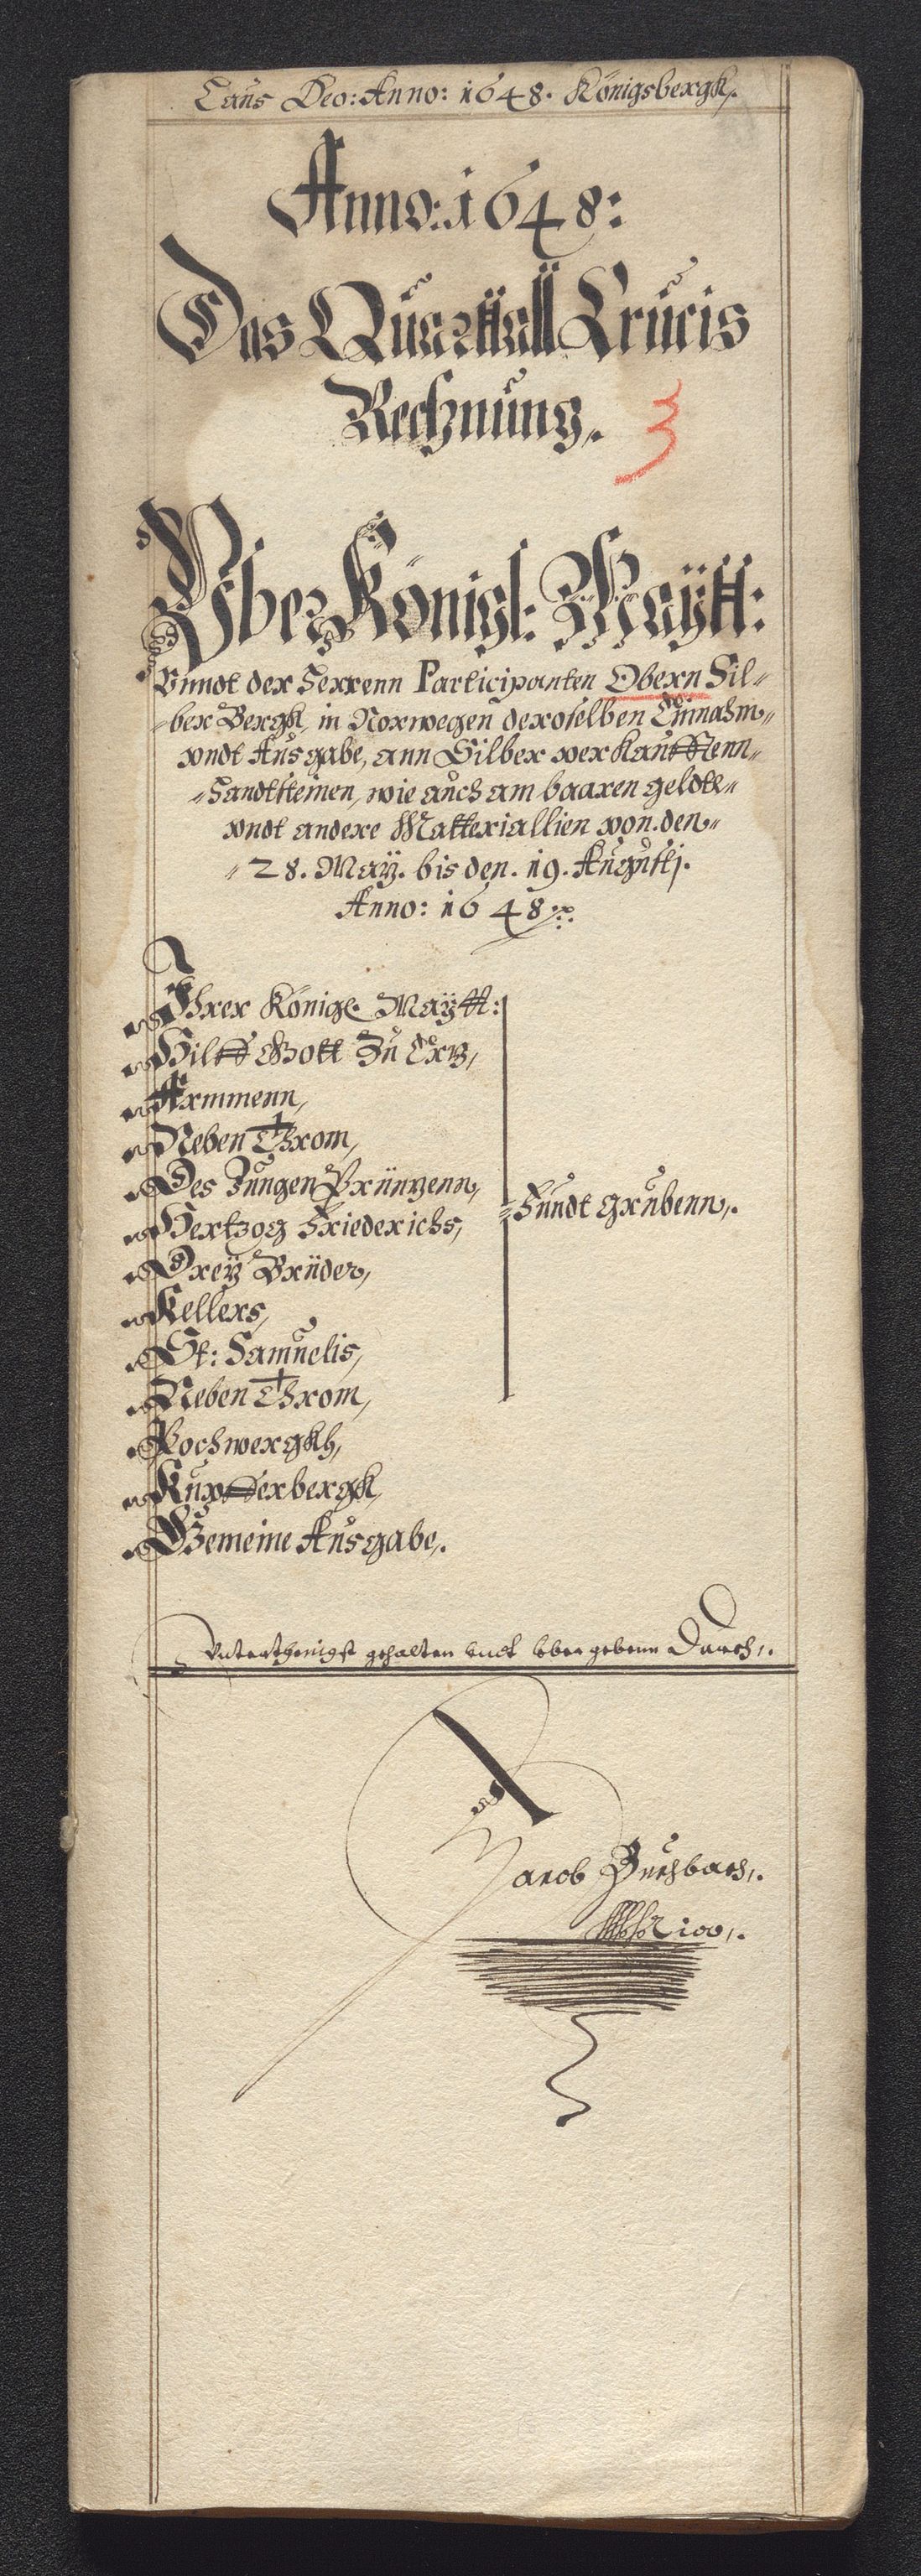 Laus Deo: Anno: 1648. Königsbergk,.
Anno: 1648:
Das Quarttall Crucis
Rechnung,.
3
Vber Königl: Maÿtt:
Vnndt der Herrenn Participanten Obern Sil„
ber Bergk, in Norwegen deroselben Einnahm„
vndt Ausgabe, ann Silber verkaufftenn„
„Handtsteinen, wie auch am baaren geldte„
vndt andere Matteriallien von. den„
„28. Maÿ. bis den. 19. Augusti.
Anno: 1648
Ihrer Königl. Maÿtt:
Hilff Gott Zu Ertz,
Armmenn,
Neben Throm,
Des Jungen Printzenn,
Hertzog Friederichs,
Fundt grubenn,.
Dreÿ Brüder,
Kellers,
St: Samuelis,
Neben Throm,
Pochwergkh,
Kupfferbergk,
Gemeine Ausgabe,.
Vnterthenigst gehalten vndt vbergebenn Durch,.
Jacob